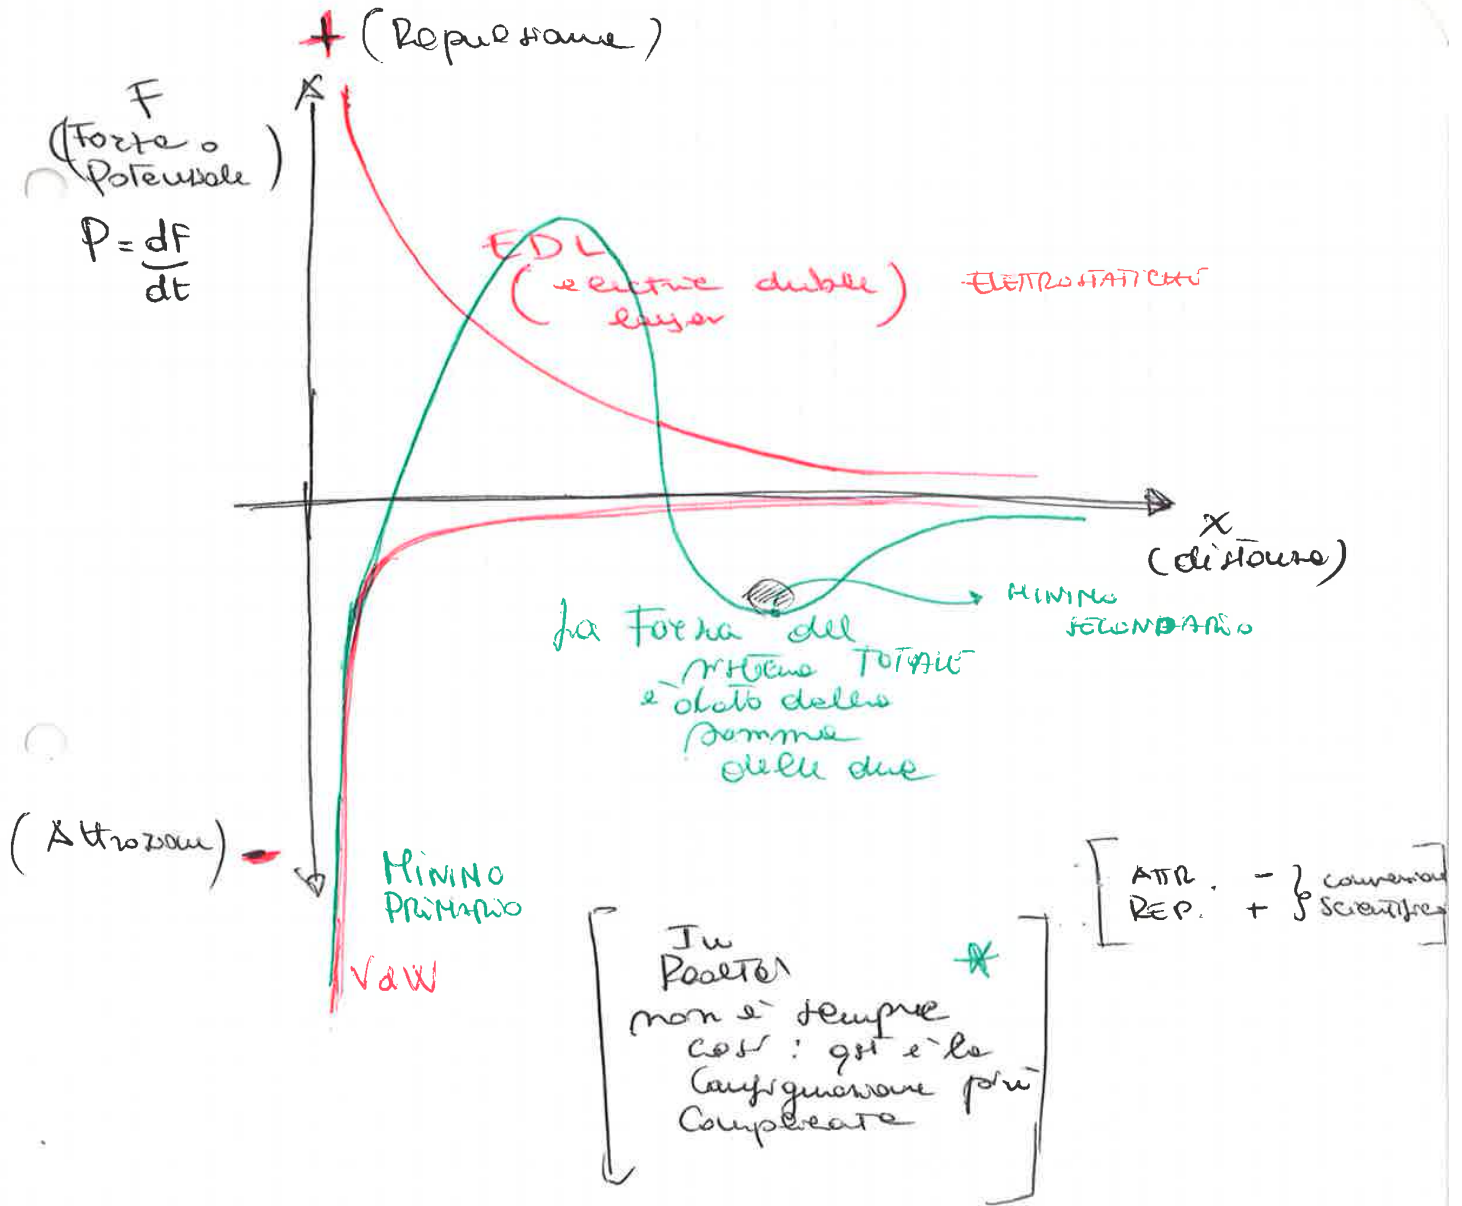 + (Repulsione)
F
(Forza o
Potenziale)
P = dF
dt
EDL
(electric duble
layer)
ELETTROSTATICHE
x
(distanza)
MINIMO
SECONDARIO
La Forza del
sistema TOTALE
è dato dalla
somma
delle due
(Attrazione) -
MINIMO
PRIMARIO
VdW
[ATTR. - } convenzione
REP. + } scientifica]
[In
Realtà *
non è sempre
così: qst è la
Configurazione più
Complicata]